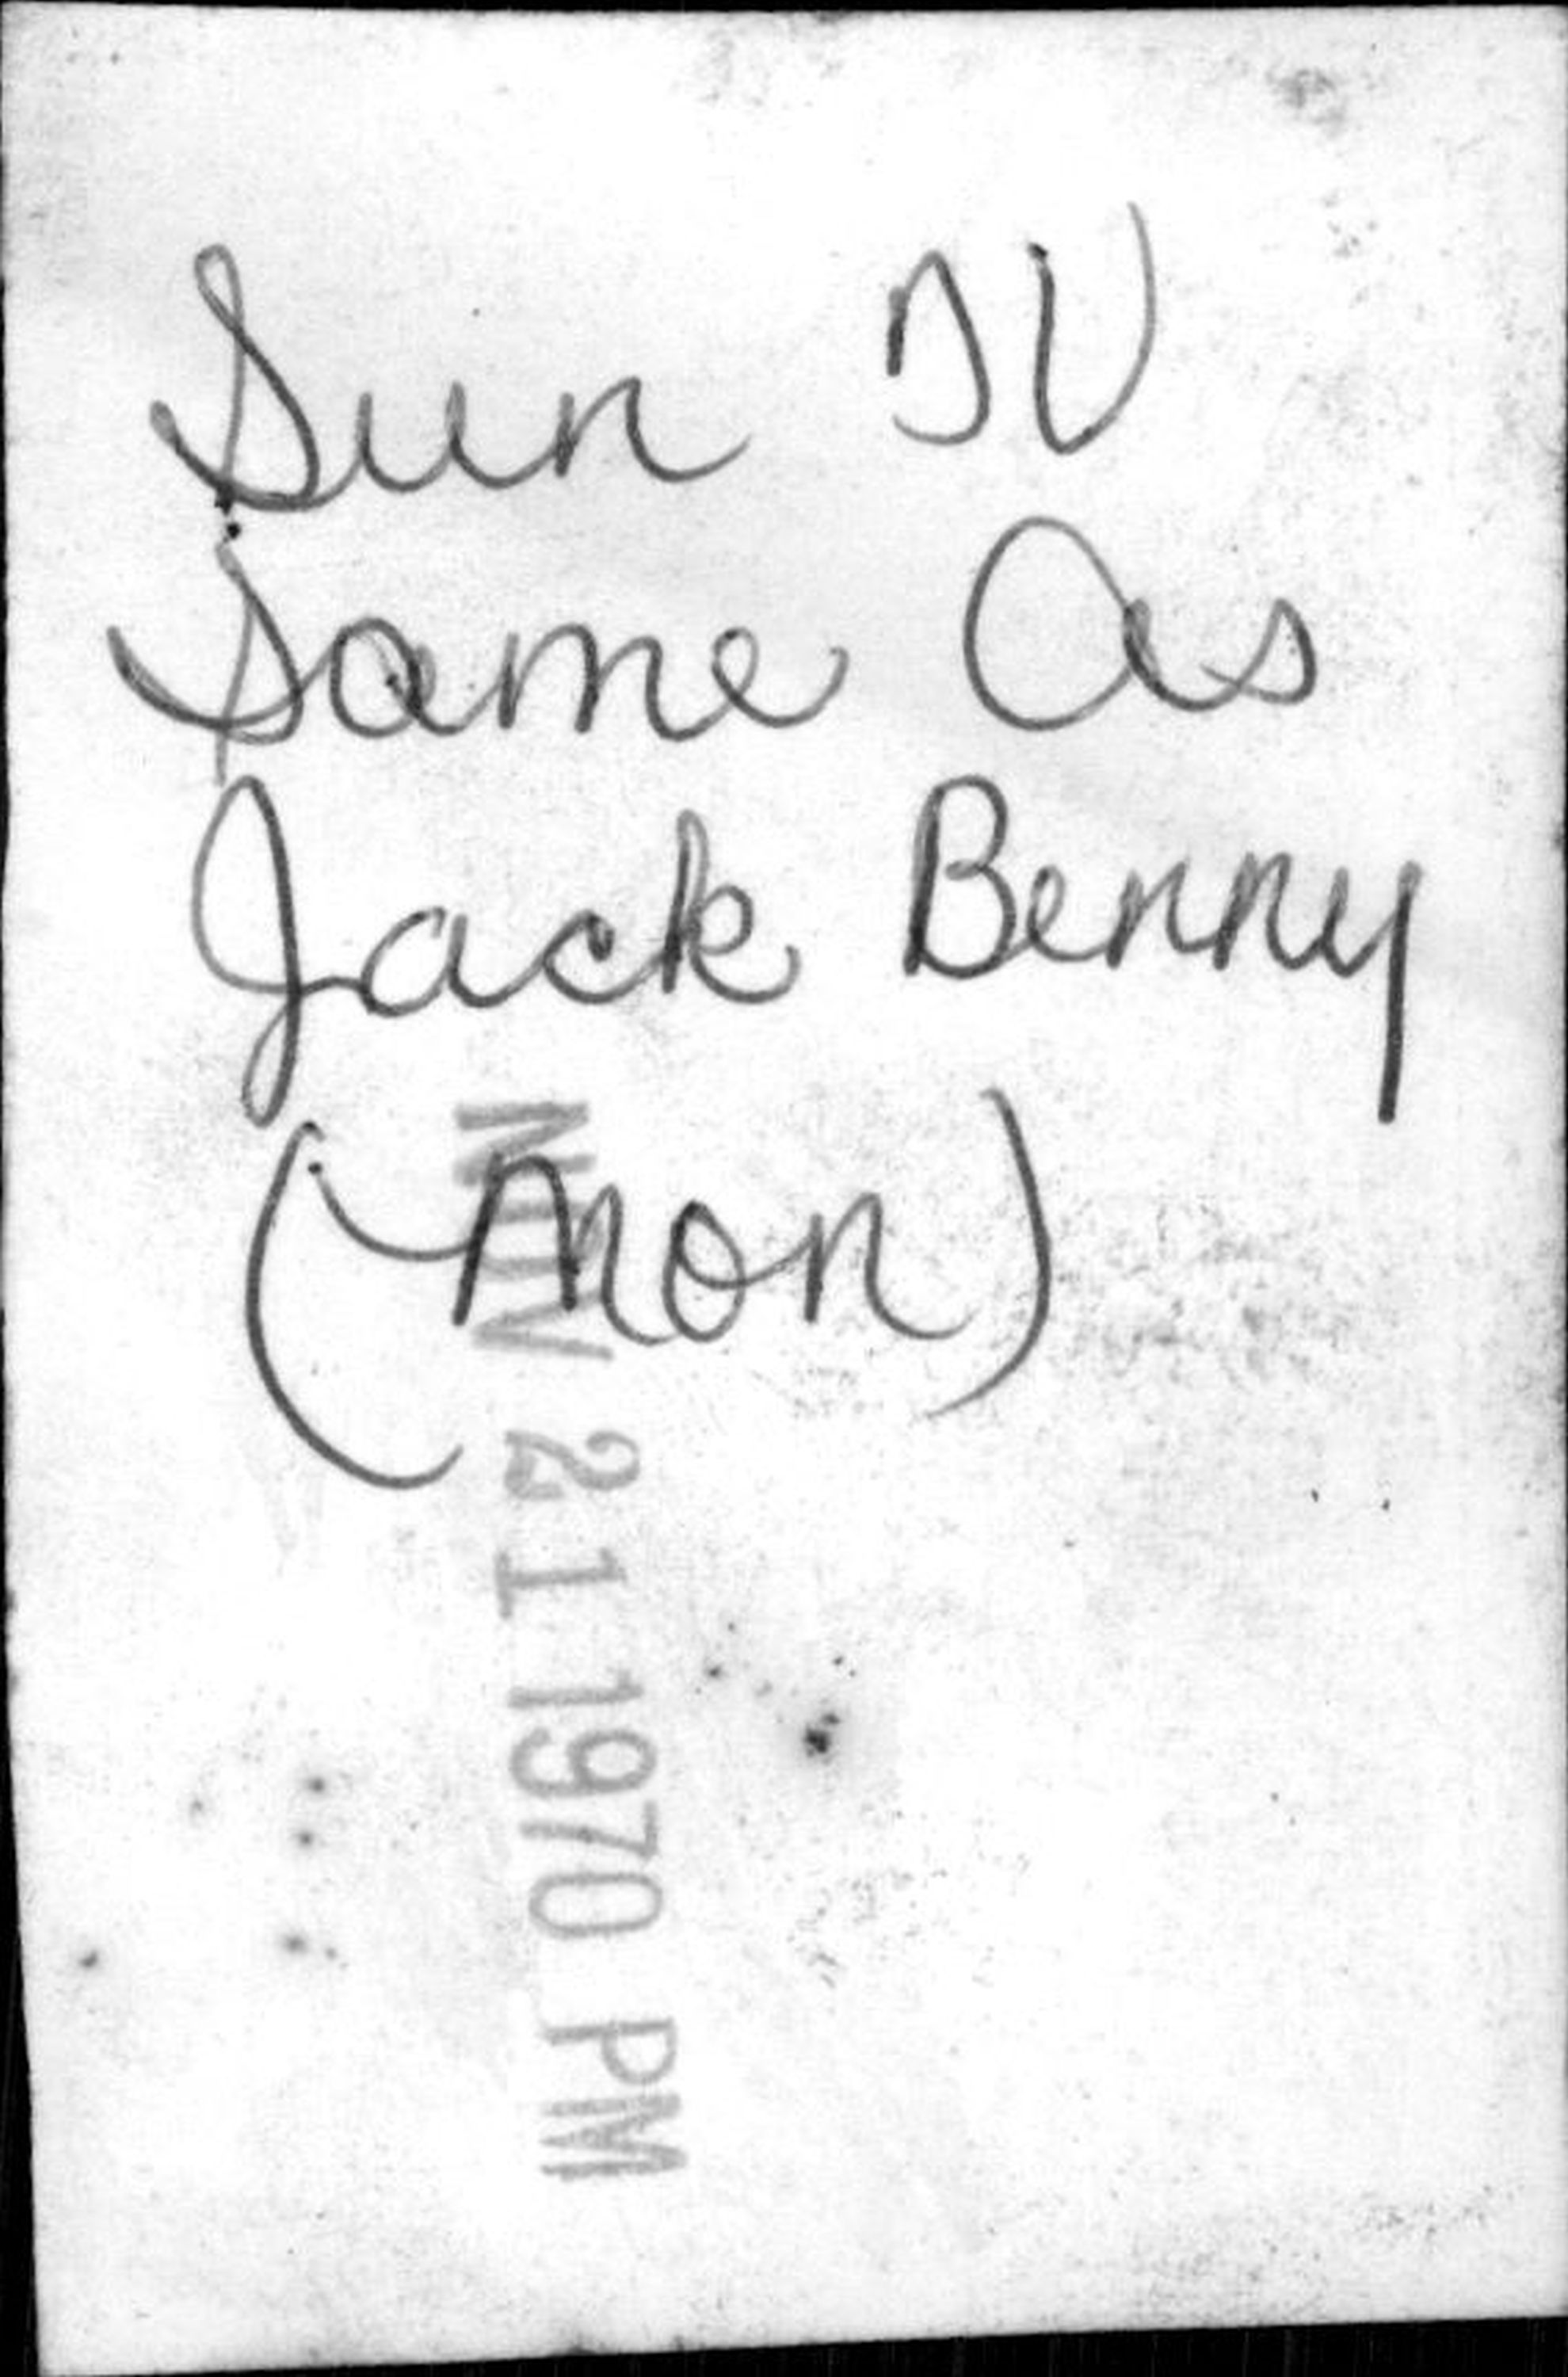 Sun TV
Same As
Jack Benny
(Mon)
NOV 21 1970 PM